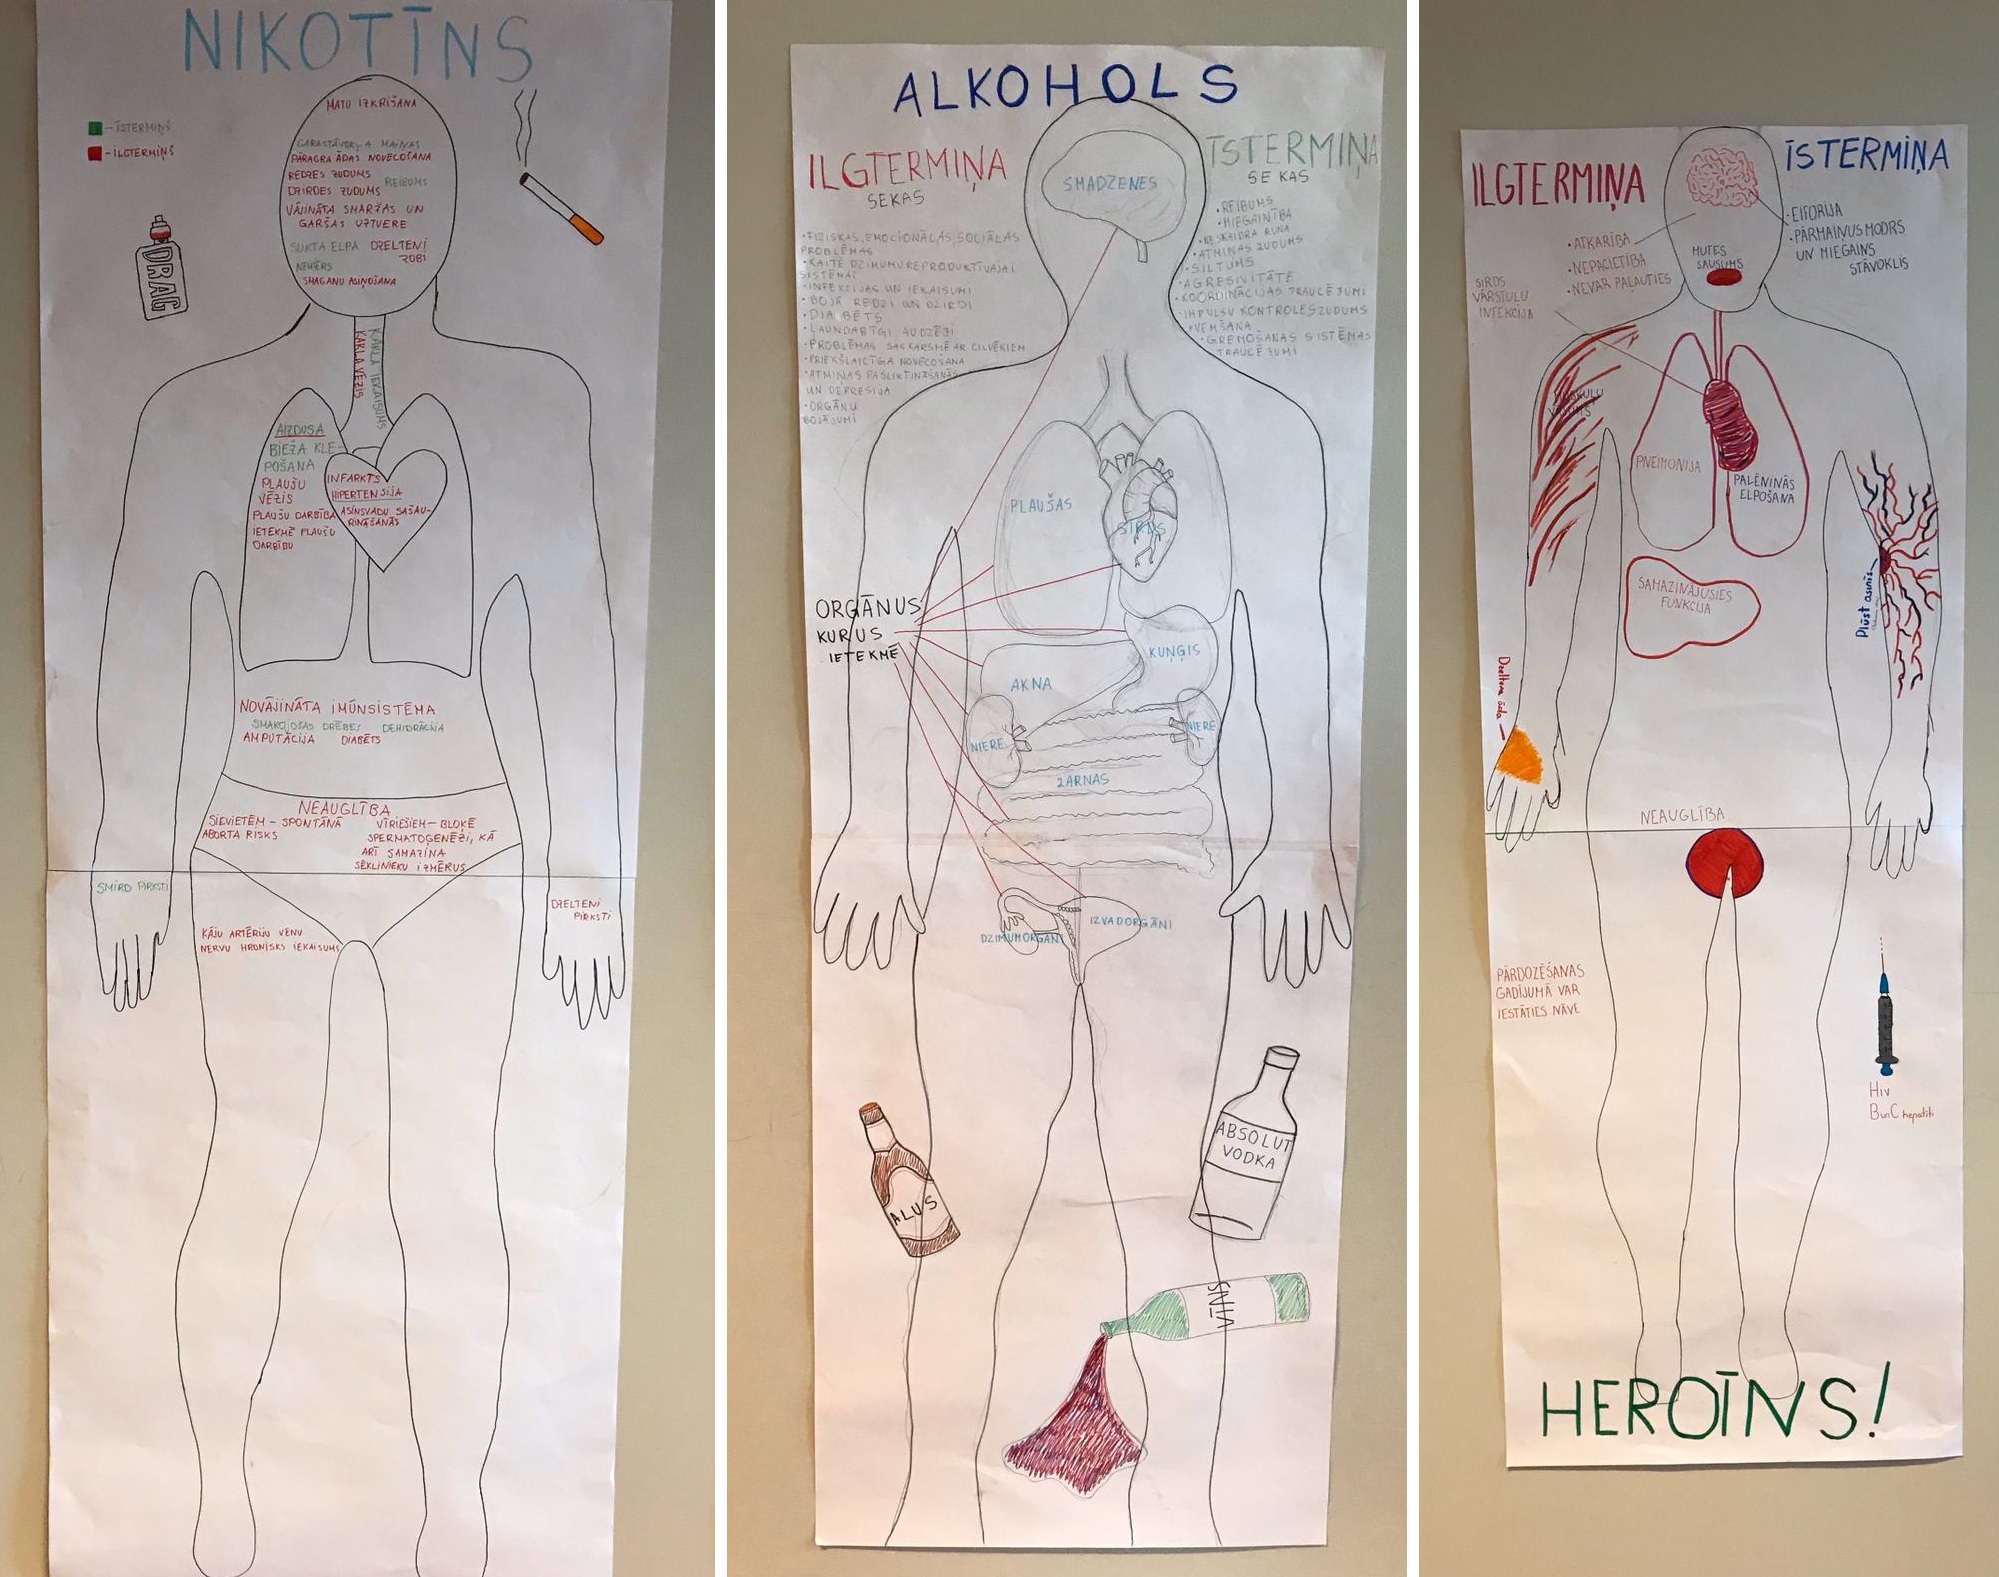 NIKOTĪNS
- ĪSTERMIŅŠ
- ILGTERMIŅŠ
DRAG
MATU IZKRIŠANA
GARASTĀVOKĻA MAIŅAS
PĀRAGRA ĀDAS NOVECOŠANA
REDZES ZUDUMS
REIBUMS
DZIRDES ZUDUMS
VĀJINĀTA SMARŽAS UN
GARŠAS UZTVERE
SLIKTA ELPA
DZELTENI
ZOBI
NEMIERS
SMAGANU ASIŅOŠANA
KAKLA VĒZIS
KAKLA IEKAISUMS
AIZDUSA
BIEŽA KLE-
POŠANA
PLAUŠU
VĒZIS
PLAUŠU DARBĪBA
IETEKMĒ PLAUŠU
DARBĪBU
INFARKTS
HIPERTENSIJA
ASINSVADU SAŠAU-
RINĀŠANĀS
NOVĀJINĀTA IMŪNSISTĒMA
SMAKOJOŠAS DRĒBES DEHIDRĀCIJA
AMPUTĀCIJA DIABĒTS
NEAUGLĪBA
SIEVIETĒM - SPONTĀNĀ
ABORTA RISKS
VĪRIEŠIEM - BLOĶĒ
SPERMATOĢENĒZI, KĀ
ARĪ SAMAZINA
SĒKLINIEKU IZMĒRUS
SMIRD PIRKSTI
DZELTENI
PIRKSTI
KĀJU ARTĒRIJU VĒNU
NERVU HRONISKS IEKAISUMS
ALKOHOLS
ILGTERMIŅA
SEKAS
• FIZISKAS, EMOCIONĀLAS, SOCIĀLAS
PROBLĒMAS
• KAITĒ DZIMUMUREPRODUKTĪVAJAI
SISTĒMAI
• INFEKCIJAS UN IEKAISUMI
• BOJĀ REDZI UN DZIRDI
• DIABĒTS
• ĻAUNDABĪGI AUDZĒJI
• PROBLĒMAS SASKARSMĒ AR CILVĒKIEM
• PRIEKŠLAICĪGA NOVECOŠANA
• ATMIŅAS PASLIKTINĀŠANĀS
UN DEPRESIJA
• ORGĀNU
BOJĀJUMI
ĪSTERMIŅA
SEKAS
• REIBUMS
• MIEGAINĪBA
• NESKAIDRA RUNA
• ATMIŅAS ZUDUMS
• SILTUMS
• AGRESIVITĀTE
• KOORDINĀCIJAS TRAUCĒJUMI
• IMPULSU KONTROLES ZUDUMS
• VEMŠANA
• GREMOŠANAS SISTĒMAS
TRAUCĒJUMI
SMADZENES
PLAUŠAS
SIRDS
ORGĀNUS
KURUS
IETEKMĒ
KUŅĢIS
AKNA
NIERE
NIERE
ZARNAS
DZIMUMORGĀNI
IZVADORGĀNI
ALUS
ABSOLUT
VODKA
VĪNS
ILGTERMIŅA
ĪSTERMIŅA
• ATKARĪBA
• NEPACIETĪBA
• NEVAR PAĻAUTIES
SIRDS
VĀRSTUĻU
INFEKCIJA
MUTES
SAUSUMS
• EIFORIJA
• PĀRMAIŅUS MODRS
UN MIEGAINS
STĀVOKLIS
MUSKUĻU
PNEIMONIJA
PALĒNINĀS
ELPOŠANA
SAMAZINĀJUSIES
FUNKCIJA
Plūst asinis
Dzeltena āda
NEAUGLĪBA
PĀRDOZĒŠANAS
GADĪJUMĀ VAR
IESTĀTIES NĀVE
HIV
B un C hepatīti
HEROĪNS!